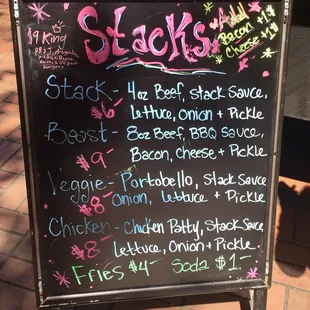 Stacks
Add
Bacon +1
Cheese +1
$9 King
Stack - 4oz Beef, Stack Sauce,
$6- Lettuce, Onion + Pickle
Beast - 8oz Beef, BBQ Sauce,
$9 Bacon, Cheese + Pickle
Veggie - Portobello, Stack Sauce
$8- Onion, Lettuce + Pickle
Chicken - Chicken Patty, Stack Sauce
$8- Lettuce, Onion + Pickle.
Fries $4- Soda $1-